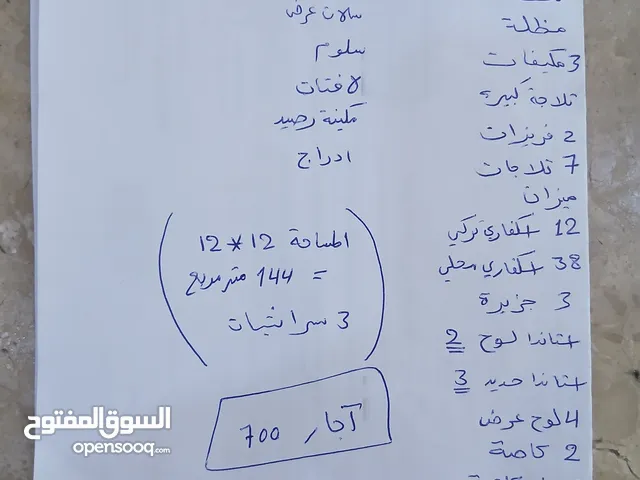 مظلة
3 مكيفات
ثلاجة كبيرة
2 فريزرات
7 ثلاجات
ميزان
12 اسكفاري تركي
38 اسكفاري محلي
3 جزيرة
استاندا لوح 2
استاندا حديد 3
4 لوح عرض
2 كاصة
سلات عرض
سلوم
لافتات
مكينة رصيد
ادراج
المساحة 12*12
= 144 متر مربع
3 سرانتيات
آجار 700
السوق المفتوح
opensooq.com